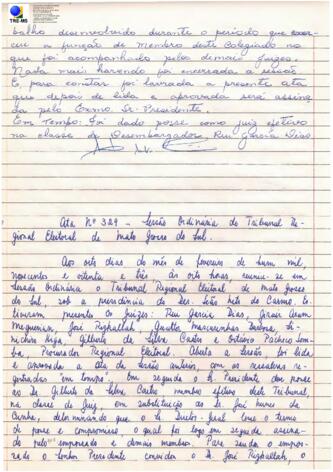 TRE-MS
balho desenvolvido durante o período que exer-
ceu a função de membro deste Colegiado no
que foi acompanhado pelos demais Juízes.
Nada mais havendo foi encerrada a sessão
E para constar foi lavrada a presente ata
que depois de lida e aprovada será assina
da pelo Exmo Sr. Presidente.
Em tempo: Foi dado posse como juiz efetivo
na classe de Desembargador, Rui Garcia Dias.
Ata Nº 329 - Sessão Ordinária do Tribunal Re-
gional Eleitoral de Mato Grosso do Sul.
Aos oito dias do mês de fevereiro de hum mil,
novecentos e oitenta e três às oito horas reuniu-se em
Sessão Ordinária o Tribunal Regional Eleitoral de Mato Grosso
do Sul, sob a presidência do Des. Leão Neto do Carmo. Es-
tiveram presentes os Juízes: Rui Garcia Dias, Gerval
José Rizkallah,
Higa, Gilberto da Silva Castro e
Procurador Regional Eleitoral. Aberta a Sessão, foi lida
e aprovada a ata da Sessão anterior, com as ressalvas re-
gistradas "em tempo". Em seguida o Sr. Presidente deu posse
ao Sr. Gilberto da Silva Castro membro efetivo deste Tribunal
na classe de Juiz, em substituição ao José
Cunha, determinando que o Sr. Diretor-Geral lesse o termo
de posse e compromisso o qual foi logo em seguida assina-
do pelo empossado e demais membros. Para saudar o empos-
sado o Senhor Presidente convidou o Sr. José Rizkallah, o